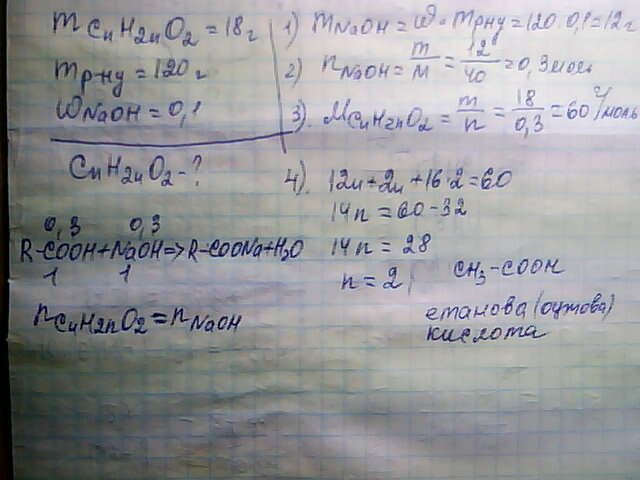 m CnH2nO2 = 18г
m р-ну = 120г
ω NaOH = 0,1
CnH2nO2 - ?
0,3 0,3
R-COOH + NaOH => R-COONa + H2O
1 1
n CnH2nO2 = n NaOH
1) m NaOH = ω · m р-ну = 120 · 0,1 = 12г
2) n NaOH = m/M = 12/40 = 0,3 моль
3). M CnH2nO2 = m/n = 18/0,3 = 60 г/моль
4). 12n + 2n + 16·2 = 60
14n = 60 - 32
14n = 28
n = 2,
CH3 - COOH
етанова (оцтова)
кислота